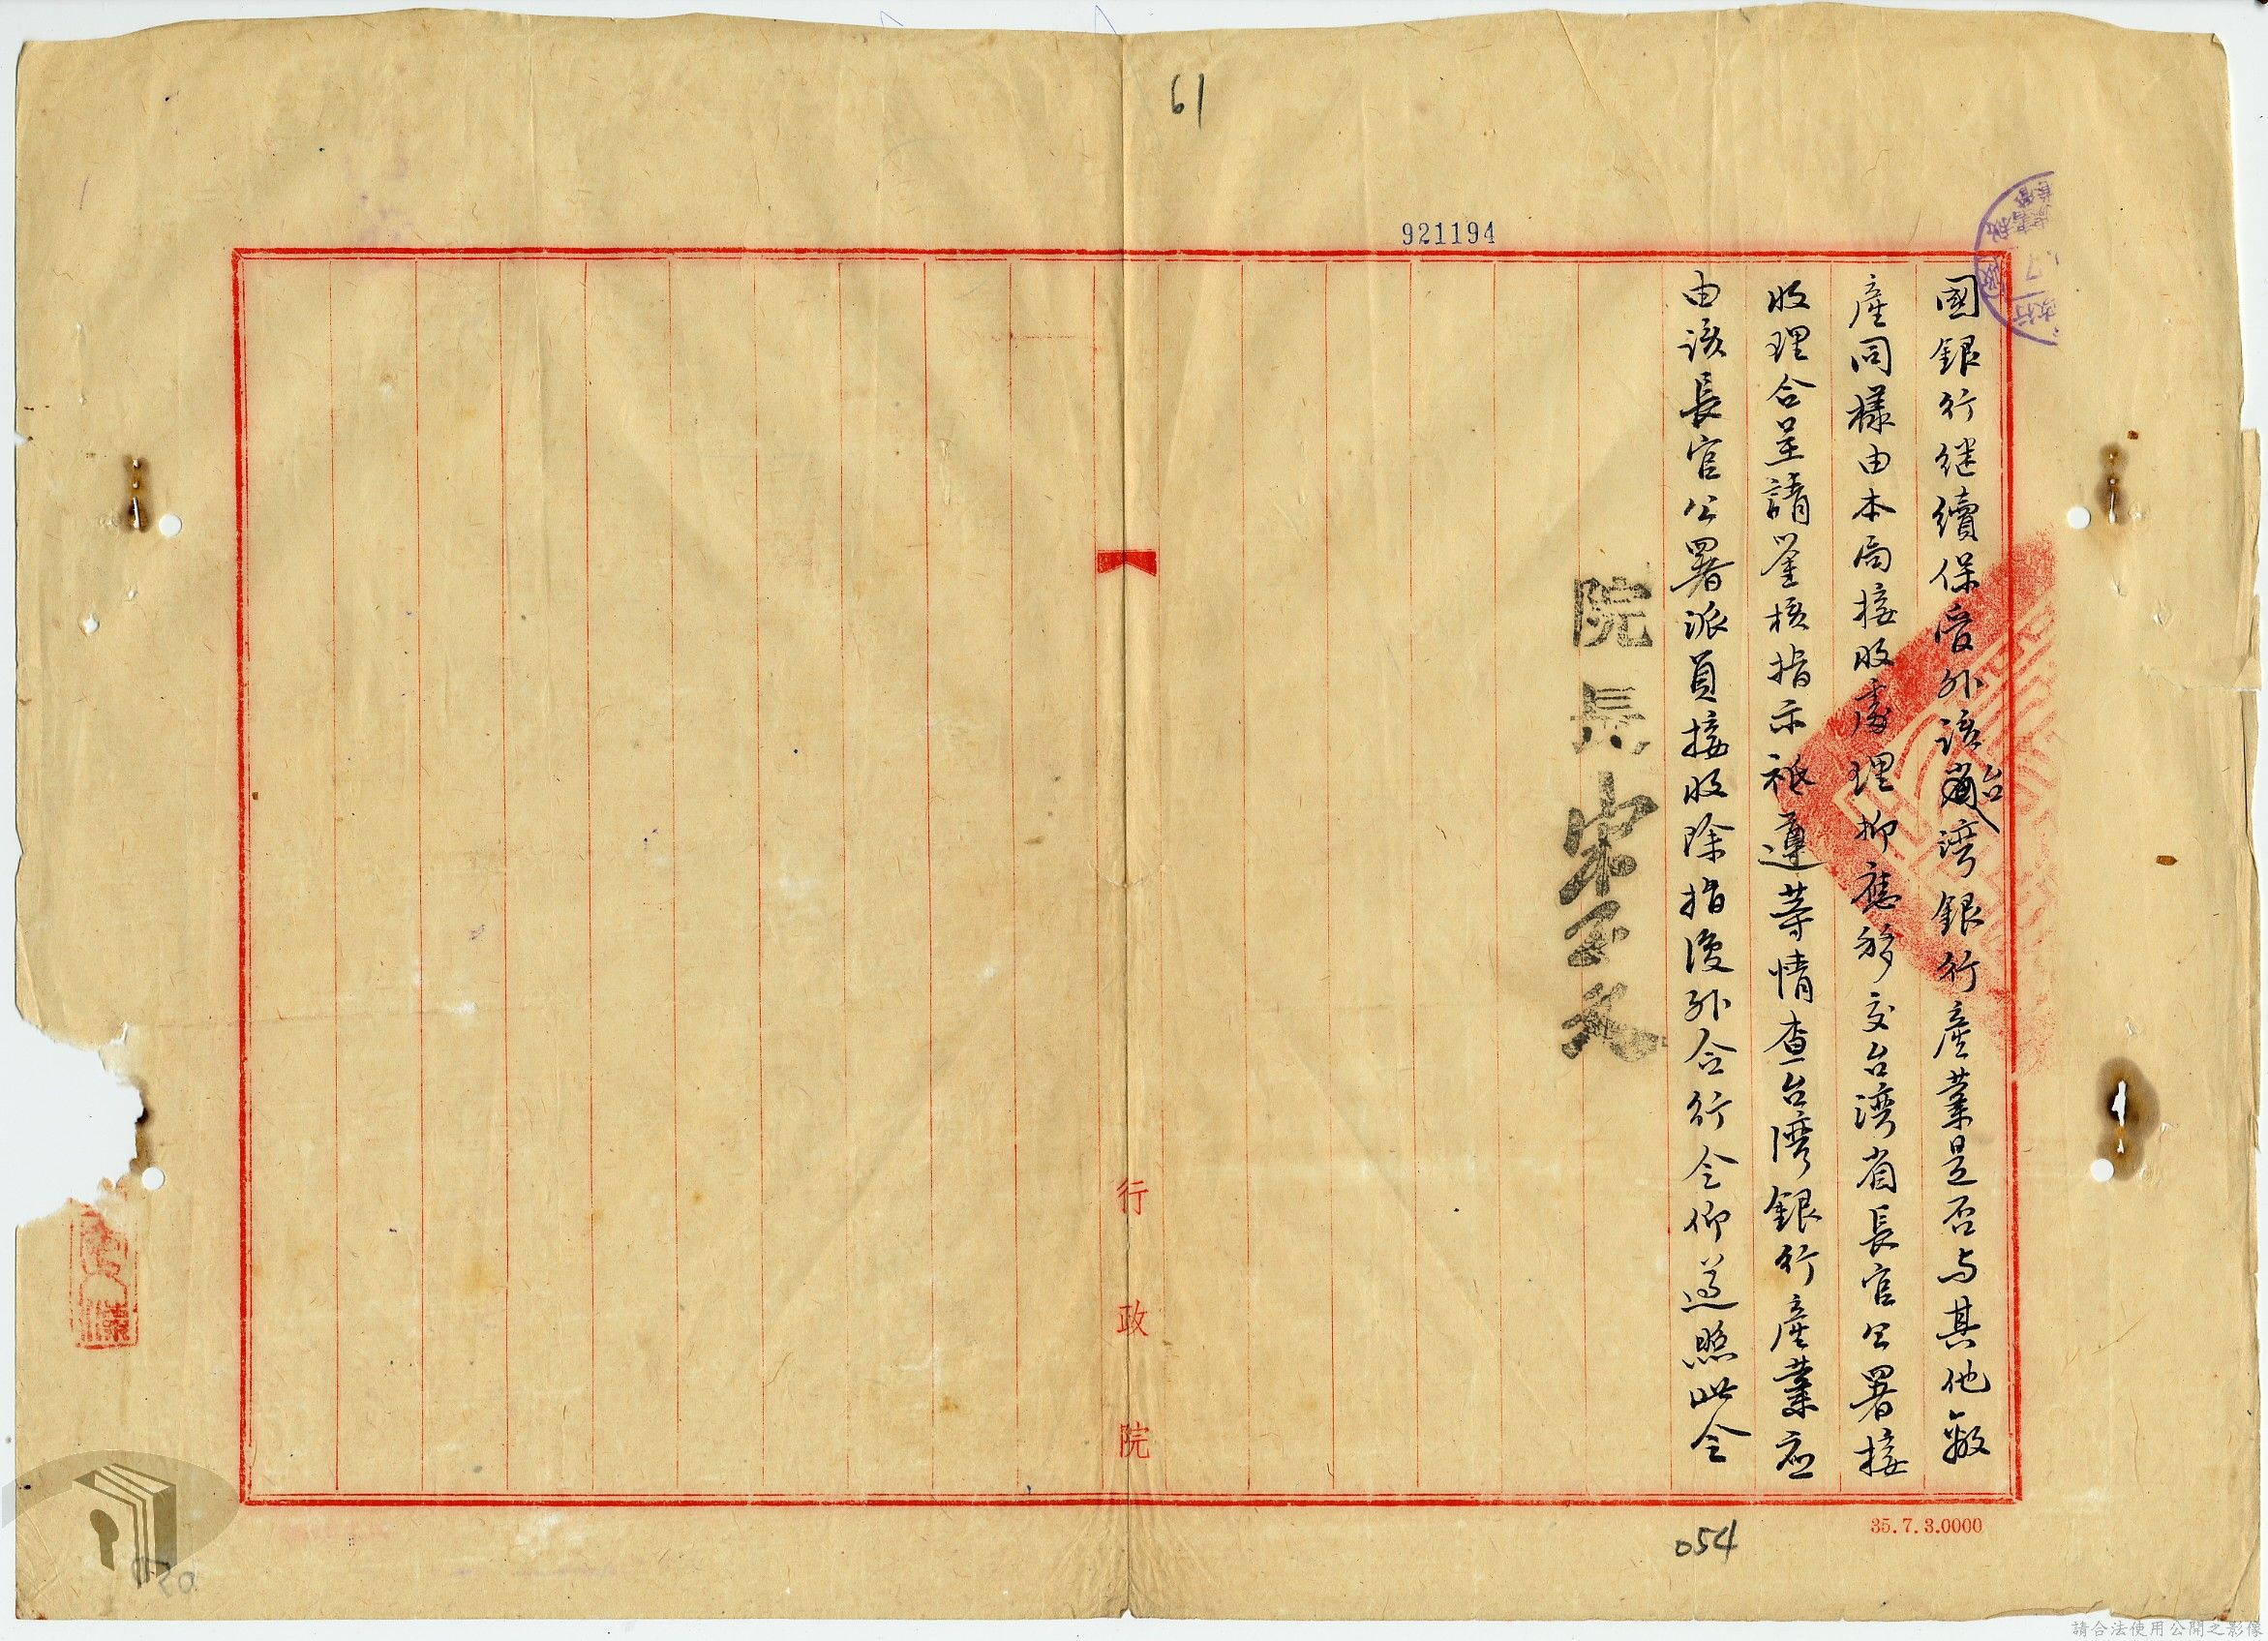 61
921194
國銀行继續保管外該台灣銀行產業是否与其他敵
產同樣由本局接收處理抑應移交台灣省長官公署接
收理合呈請鉴核指示祗遵等情查台灣銀行產業应
由該長官公署派員接收除指復外合行令仰遵照此令
院長宋子文
行政院
054
35.7.3.0000
請合法使用公開之影像